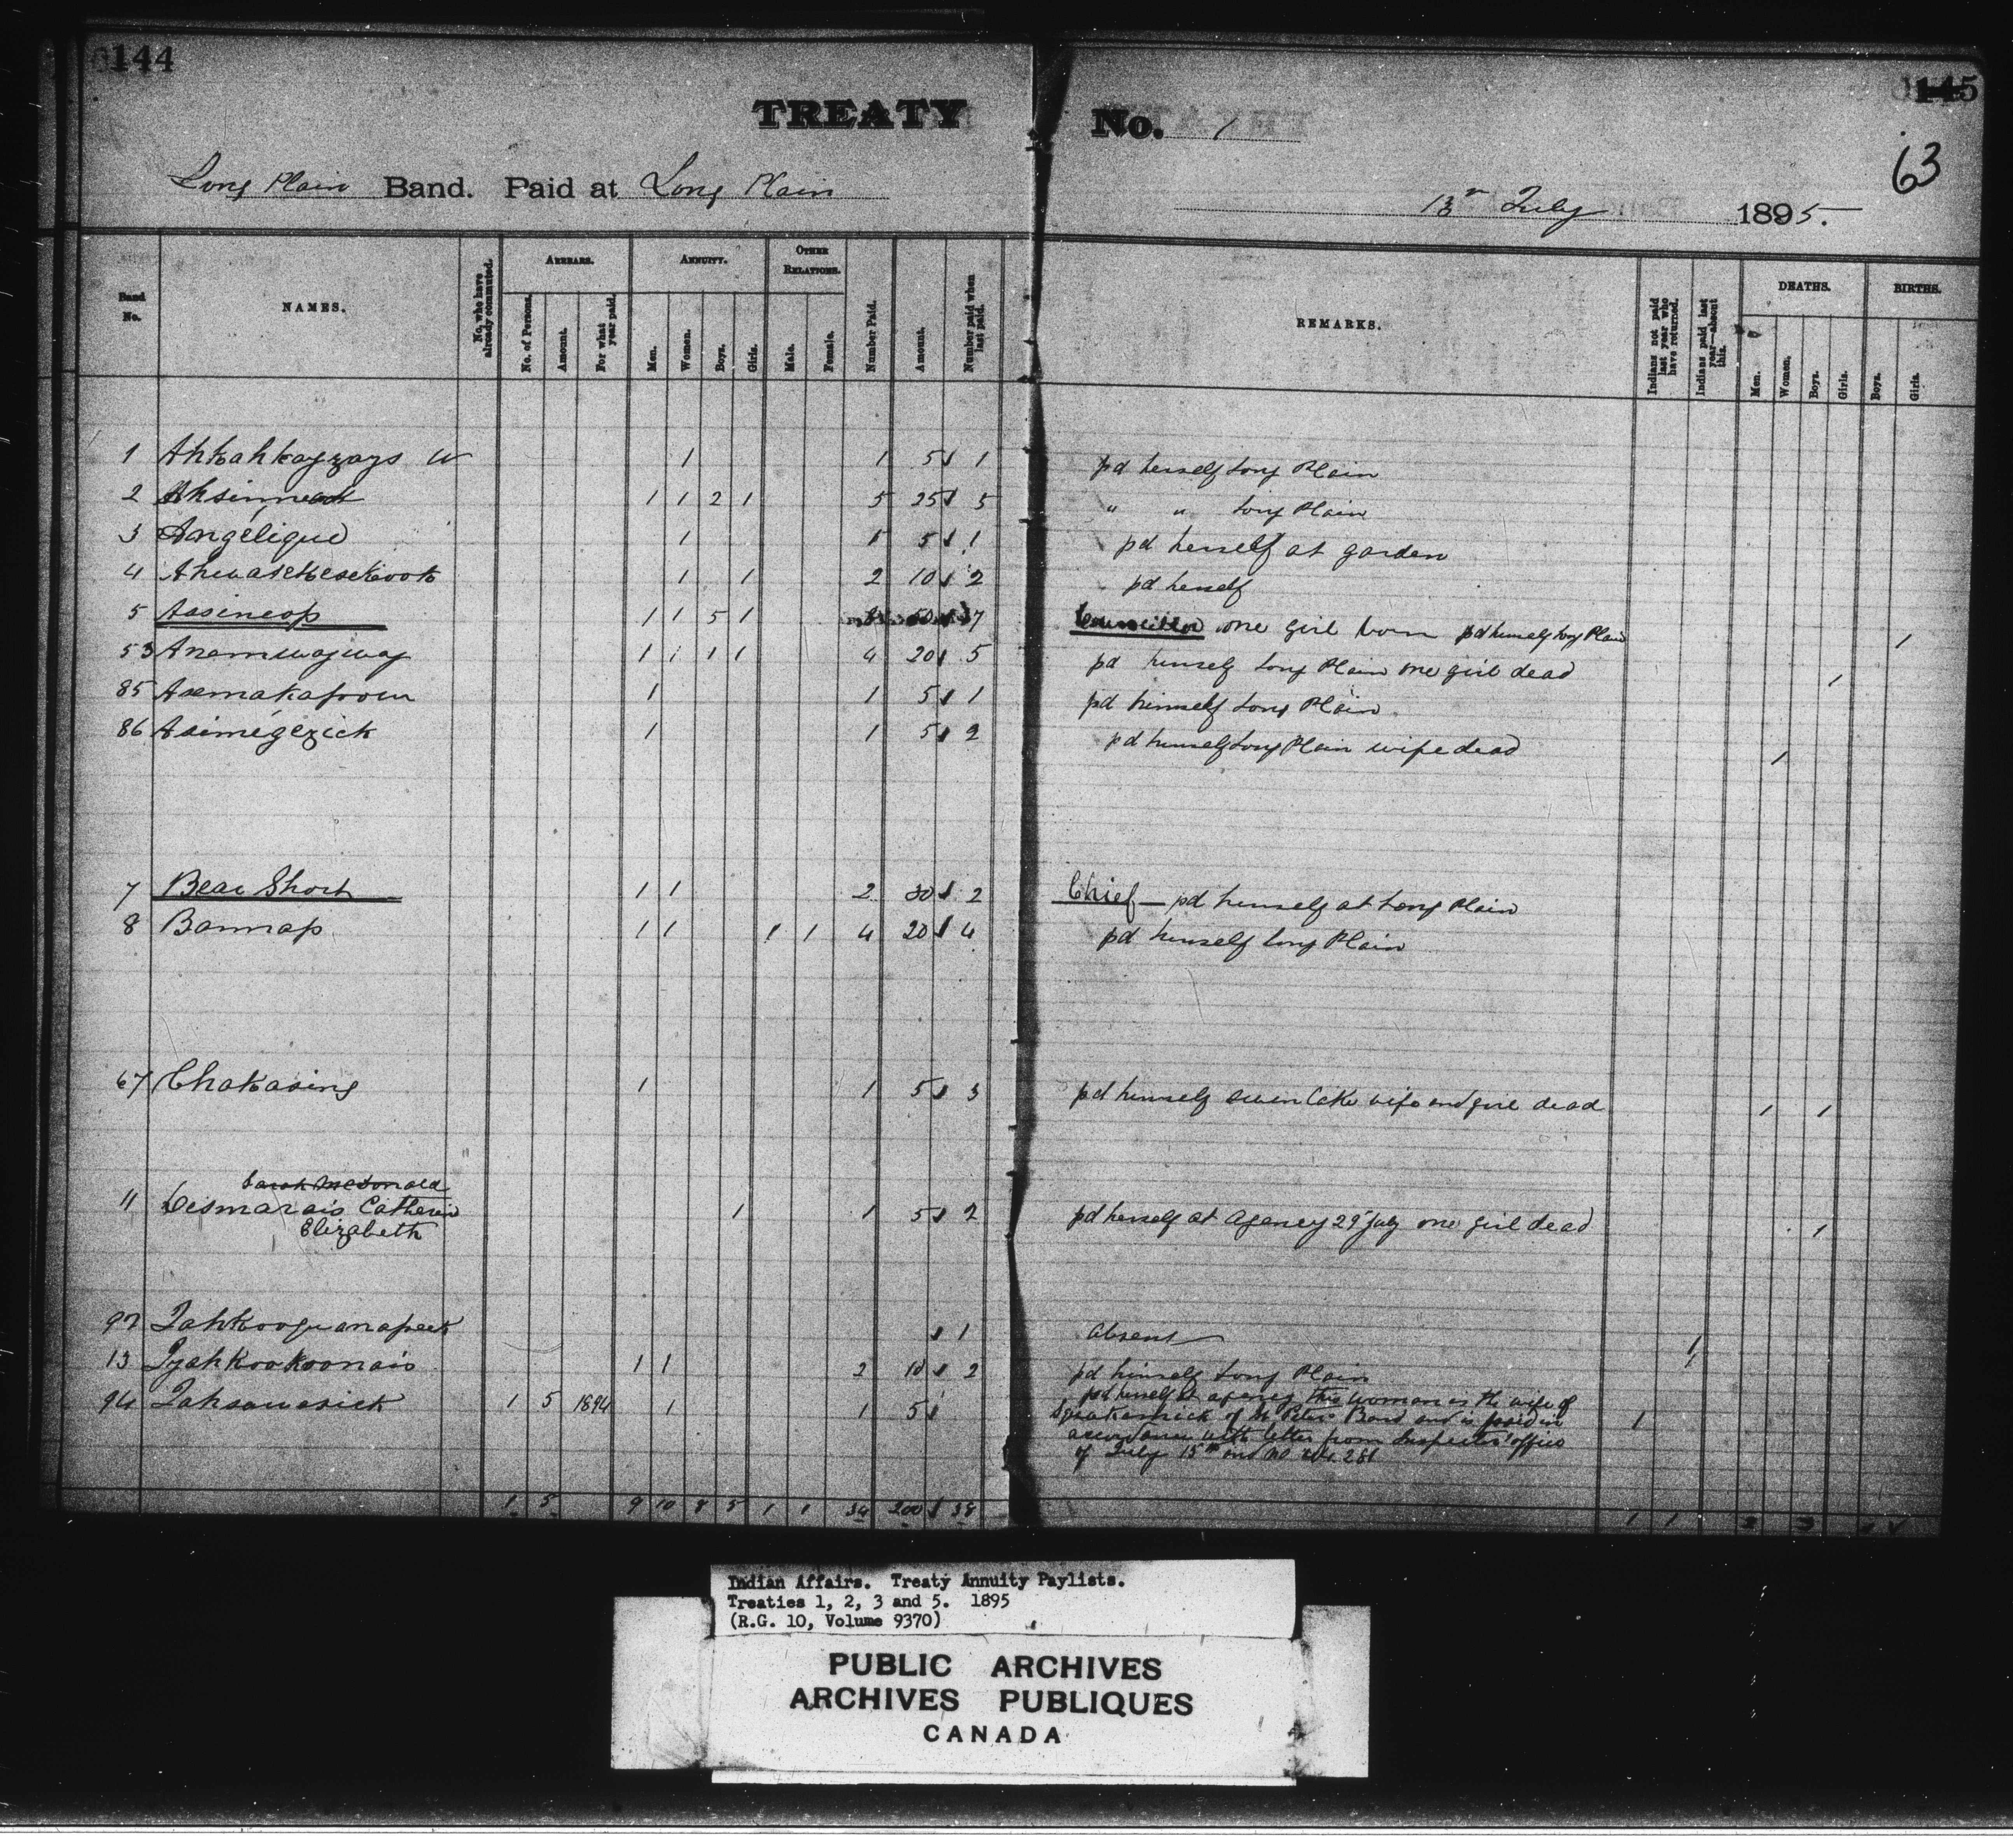 144
145
63
TREATY No. 1
Long Plain Band. Paid at Long Plain
13th July 1895.
Band No.
NAMES.
No. who have already commuted.
ARREARS.
No. of Persons.
Amount.
For what year paid.
ANNUITY.
Men.
Women.
Boys.
Girls.
OTHER RELATIONS.
Male.
Female.
Number Paid.
Amount.
Number paid when last paid.
REMARKS.
Indians not paid last year who have returned.
Indians paid last year—absent this.
DEATHS.
Men.
Women.
Boys.
Girls.
BIRTHS.
Boys.
Girls.
1 Ahkahkayzays W 1 1 5 1 pd herself Long Plain
2 1 1 2 1 5 25 5 " " Long Plain
3 Angélique 1 1 5 1 pd herself at garden
4 1 1 2 10 2 pd herself
5 Aasineop 1 1 5 1 8 7 Councillor one girl born pd himself Long Plain 1
53 Anemwayway 1 1 1 1 4 20 5 pd himself Long Plain one girl dead 1
85 Asemakapoow 1 1 5 1 pd himself Long Plain
86 Asimégezick 1 1 5 2 pd himself Long Plain wife dead 1
7 Bear Short 1 1 2 30 2 Chief — pd himself at Long Plain
8 Bannap 1 1 1 1 4 20 4 pd himself Long Plain
67 Chakasing 1 1 5 3 pd himself Swan Lake wife and girl dead 1 1
Sarah McDonald
11 Desmarais Catherin 1 1 5 2 pd herself at Agency 29 July one girl dead 1
Elizabeth
97 1 absent 1
13 Iyahkookoonais 1 1 2 10 2 pd himself Long Plain
94 Jahsawasick 1 5 1894 1 1 5 pd herself at agency this woman is the wife of
of St Peters Band and is paid in 1
accordance with letter from Inspectors office
of July 15th and no 281
1 5 9 10 8 5 1 1 34 200 38 1 1
Indian Affairs. Treaty Annuity Paylists.
Treaties 1, 2, 3 and 5. 1895
(R.G. 10, Volume 9370)
PUBLIC ARCHIVES
ARCHIVES PUBLIQUES
CANADA